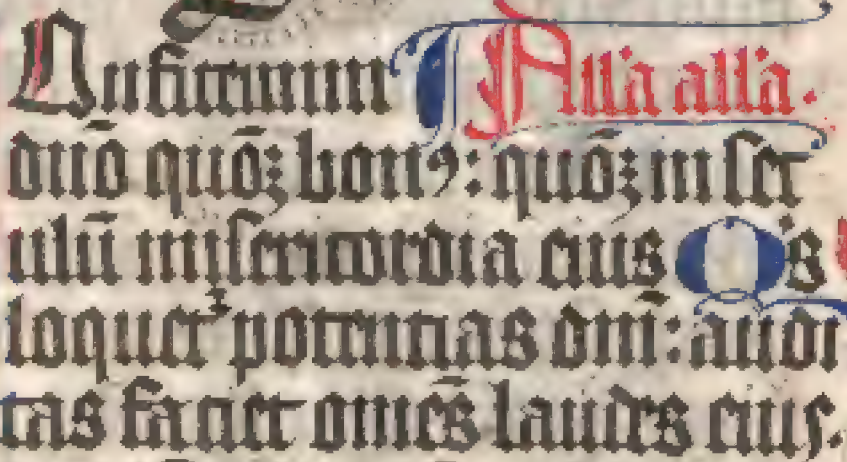 Cnfitemini Alla alla.
dno quō bonꝰ: quō in sct
ulū misericordia eius Qis
loquet potentias dni: audi
tas faciet omēs laudes eius.